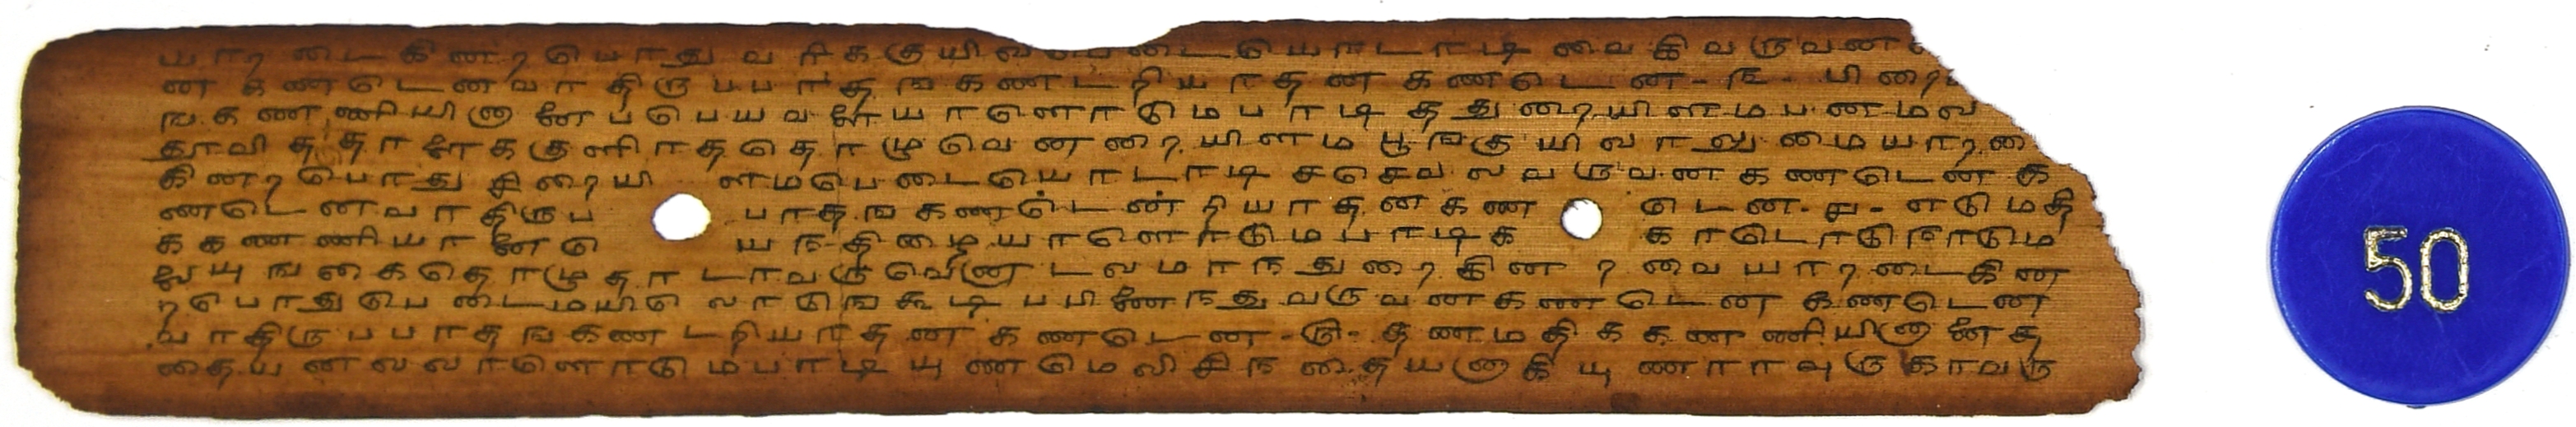 யாறடைகினறபொதுவரிககுயிலபெடையொடாடி வைகிவருவன
ன கணடெனவா திருபபாதஙகணடறியாதன கணடென - ௩ - பிறை
ஙகணணியினானைபபெயவளையாளொடுமபாடிததுறையிளமபனமல
தூவிததொளைககுளிரததொழுவெனறையிளமபூஙகுயிலாலுமையாறடை
கினறபொதுசிறையி ளமபெடையொடாடி செவலவருவனகணடென க
ணடெனவாதிருப பாதஙகணடெண்றியாதனகண டென - ௪ - எடுமதி
ககணணியானையெ யநதிழையாளொடுமபாடிக காடொடுநாடும
லையுஙகைதொழுதாடாவருவெனாடலமாநதுறைகினறவையாறடைகின
றபொதுபெடைமயிலொடுஙகூடிபபிணைநதுவருவனகணடென கணடென
வாதிருபபாதஙகணடறியாதனகணடென - ௫ - தணமதிககணணியினானைத
தையனலலாளொடுமபாடியுணமெலிசிநதையனாகியுணராவுருகாவரு
50